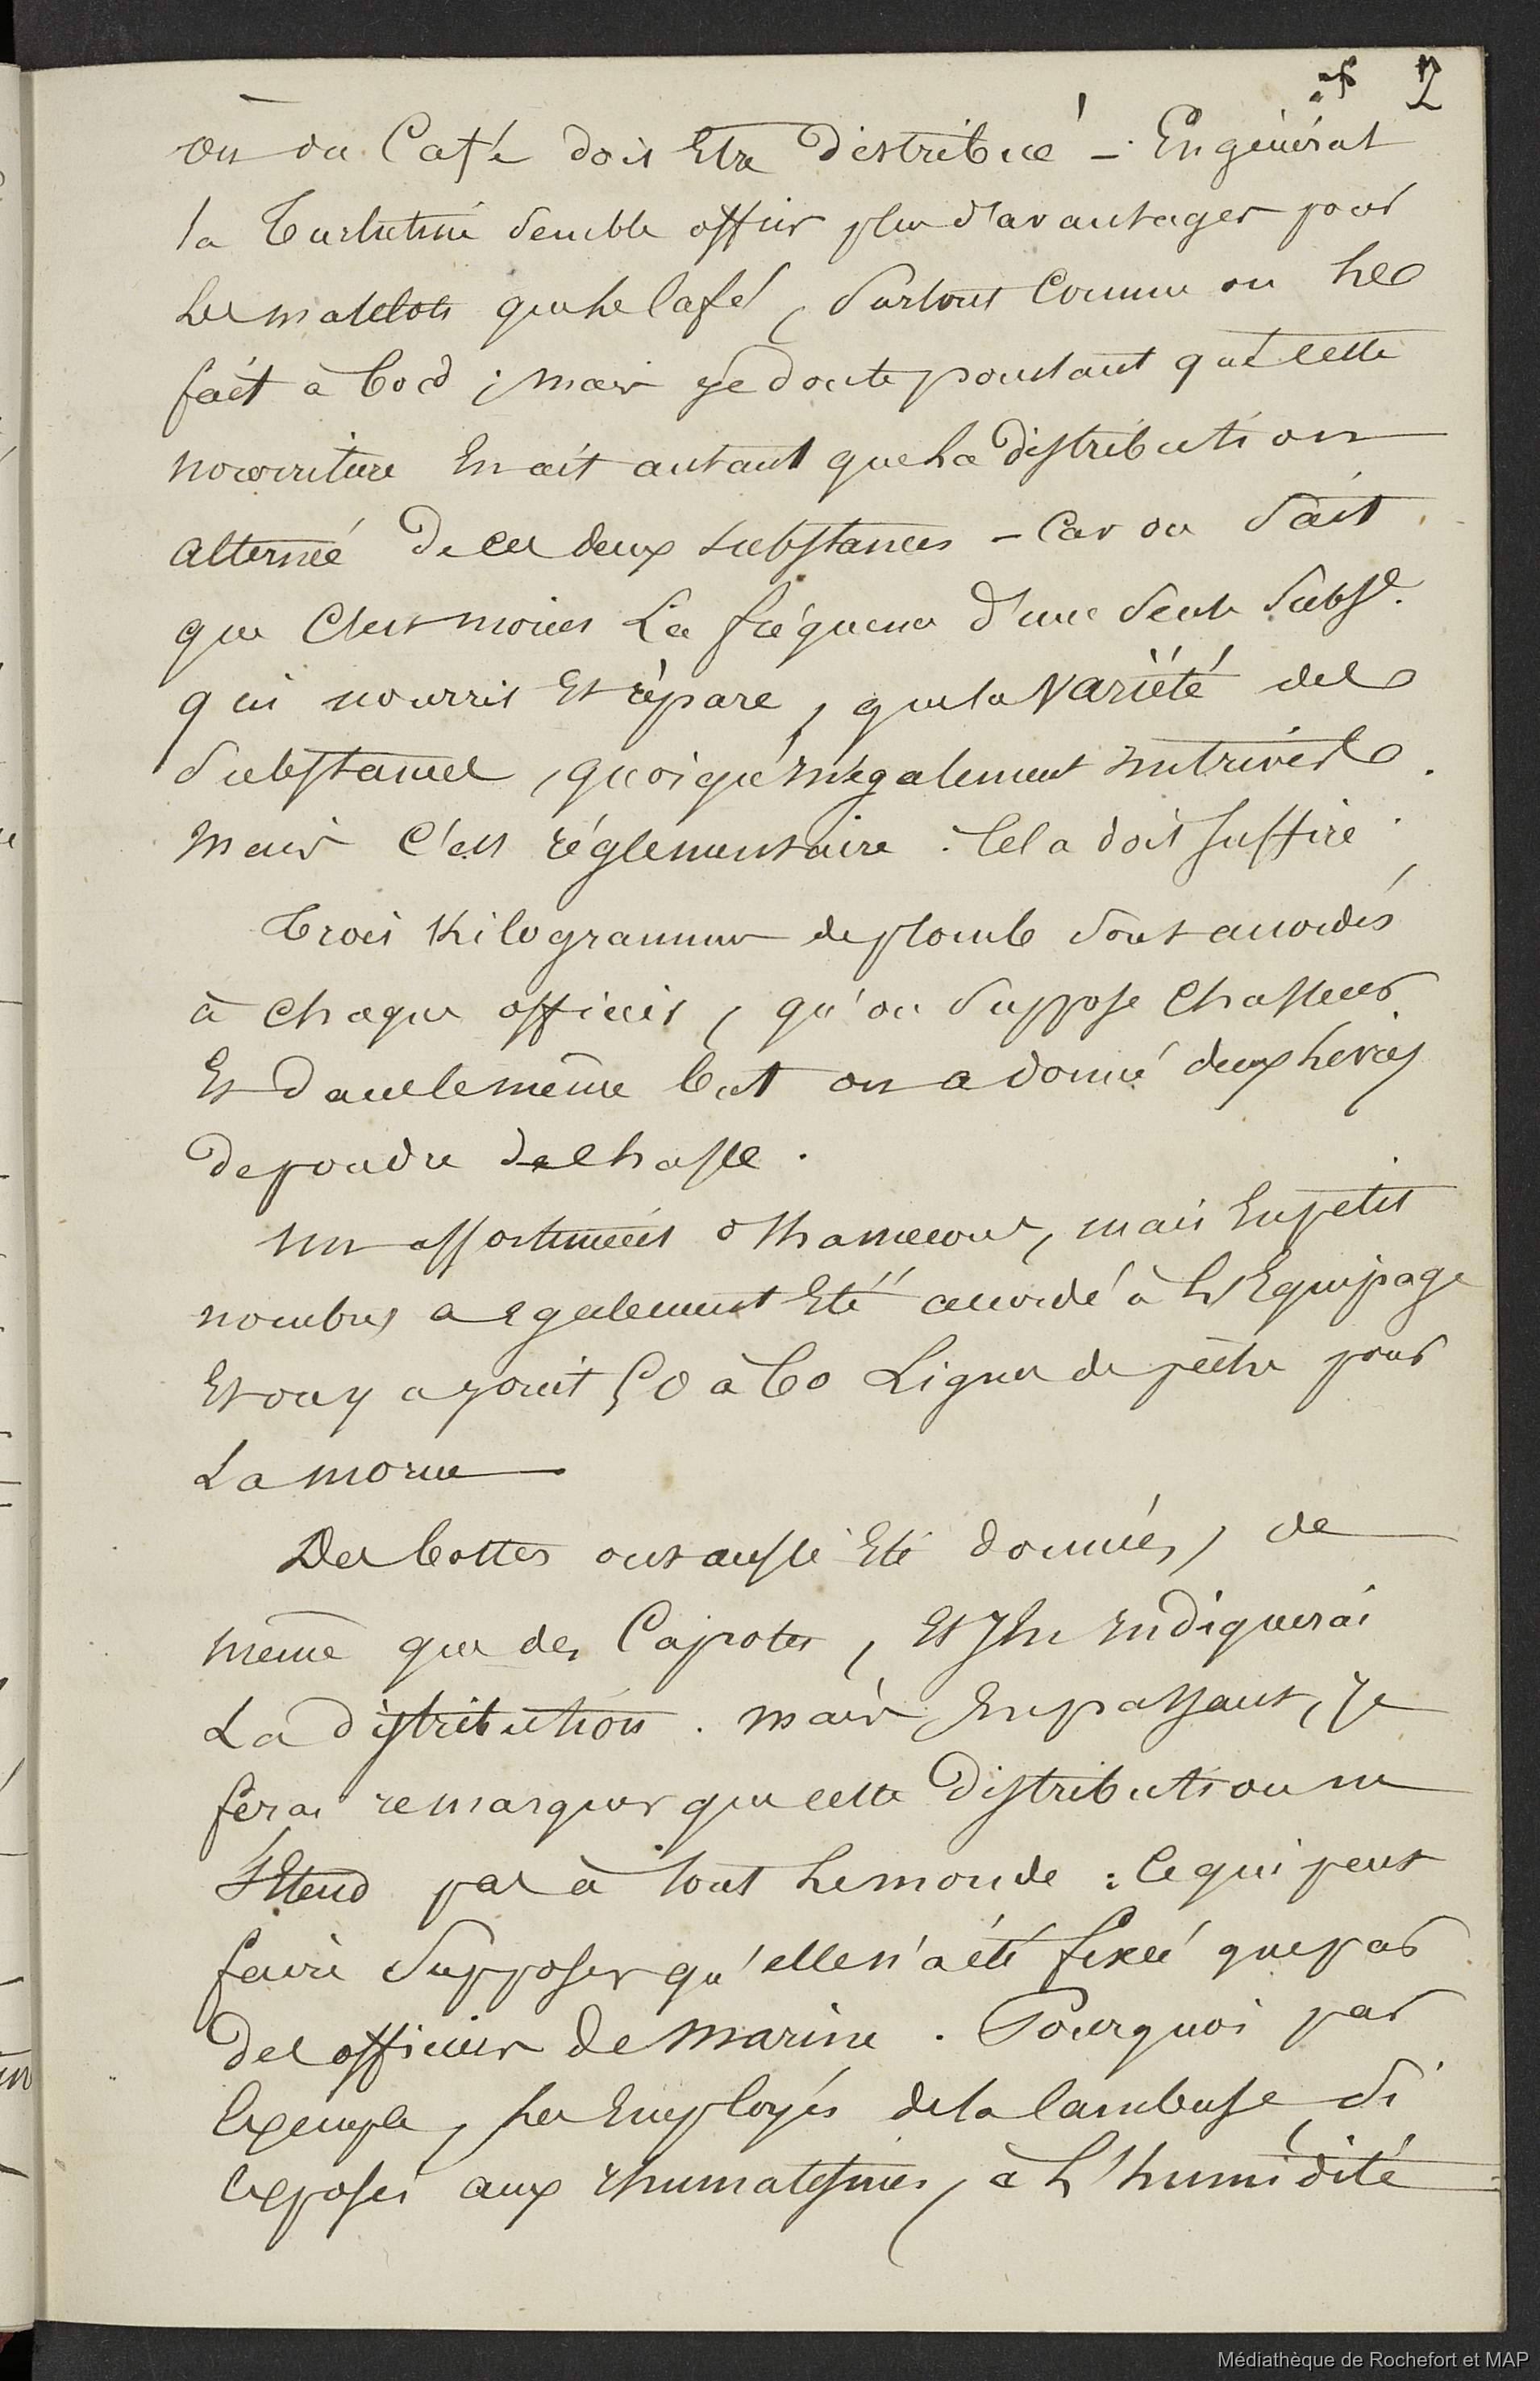 2
ou du Café doit Etre distribué — En général
la Turlutine semble offrir plus d'avantages pour
les matelots que le Café, surtout comme on le
fait à bord ; mais je doute pourtant que cette
nourriture En ait autant que la distribution
alternée de ces deux substances — Car on sait
que c'est moins la fréquence d'une seule subst.
qui nourrit Et répare, que la Variété des
substances, quoique inégalement nutritives.
Mais c'est réglementaire. Cela doit suffire.
Trois Kilogrammes de plomb sont accordés
à chaque officier, qu'on suppose Chasseur
Et dans le même but on a donné deux livres
de poudre de chasse.
Un assortiment d'hameçons, mais En petit
nombre a Egalement Eté accordé à l'Equipage
Et on y ajouit 50 à 60 Lignes de pêche pour
La morue
Des bottes ont aussi Eté données, de
même que des Capotes, Et J'En indiquerai
La distribution. Mais En passant, je
ferai remarquer que cette distribution ne
s'Etend pas à tout le monde : Ce qui peut
faire supposer qu'elle n'a été fixée que par
des officiers de Marine. Pourquoi par
Exemple, les Employés de la Cambuse si
Exposés aux rhumatismes, à l'humidité
Médiathèque de Rochefort et MAP